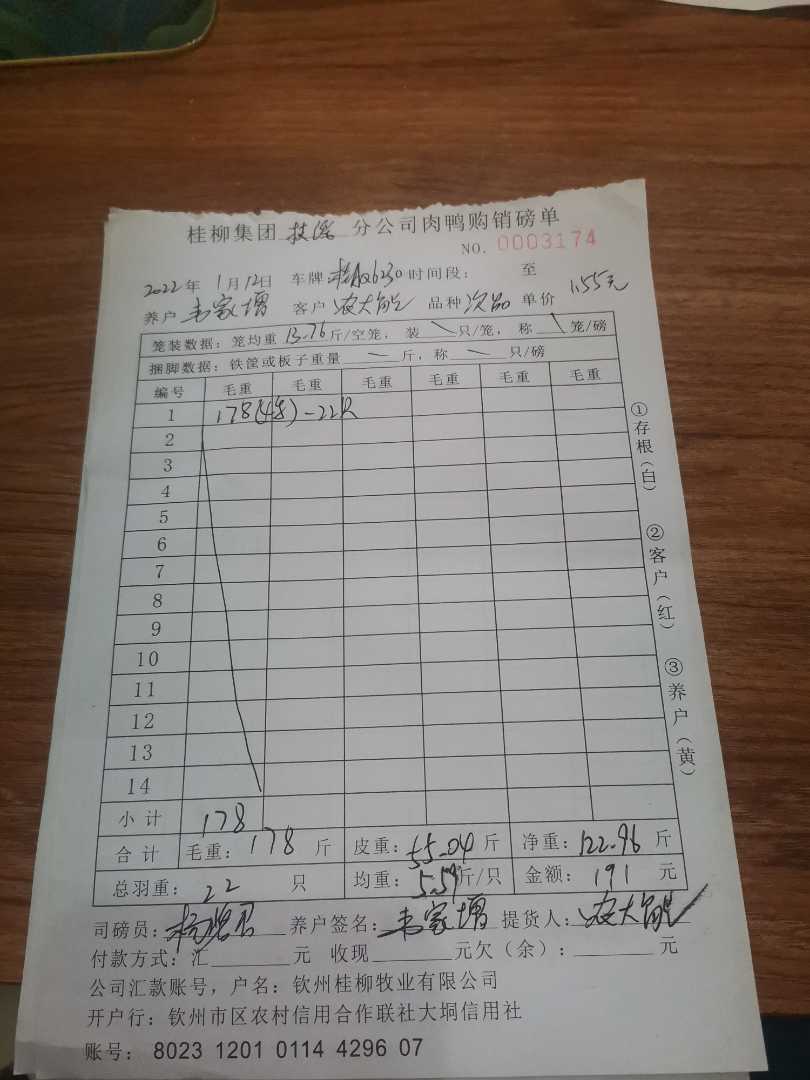 桂柳集团 技 分公司肉鸭购销磅单
NO. 0003174
2022年 1月12日 车牌: Q6230 时间段: 至
养户 韦家增 客户 农大能 品种 次品 单价 1.55元
笼装数据: 笼均重 13.76 斤/空笼, 装 \ 只/笼, 称 \ 笼/磅
捆脚数据: 铁筐或板子重量 — 斤, 称 — 只/磅
编号 毛重 毛重 毛重 毛重 毛重 毛重
1 178(4笼)-22只
2
3
4
5
6
7
8
9
10
11
12
13
14
小计 178
合计 毛重: 178 斤 皮重: 55.04 斤 净重: 122.96 斤
总羽重: 22 只 均重: 5.59 斤/只 金额: 191 元
①存根(白)
②客户(红)
③养户(黄)
司磅员: 杨 养户签名: 韦家增 提货人: 农大能
付款方式: 汇 元 收现 元欠(余): 元
公司汇款账号, 户名: 钦州桂柳牧业有限公司
开户行: 钦州市区农村信用合作联社大垌信用社
账号: 8023 1201 0114 4296 07